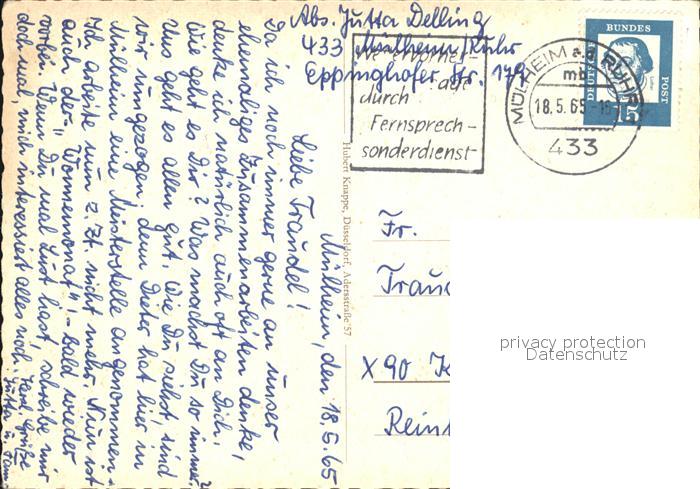 Abs. Jutta Delling
433 Mülheim/Ruhr
Eppinghofer Str. 179
durch
Fernsprech-
sonderdienst
MÜLHEIM a.d. RUHR
mb
18.5.65-18
433
DEUTSCHE
BUNDES
POST
15
Mülheim, den 18.5.65
Liebe Traudel!
Da ich noch immer gerne an unser
ehemaliges Zusammenarbeiten denke,
denke ich natürlich auch oft an Dich!
Wie geht es Dir? Was machst Du so immer?
Uns geht es allen gut. Wie Du siehst, sind
wir umgezogen, denn Dieter hat hier in
Mülheim eine Meisterstelle angenommen.
Ich arbeite nun z. Zt. nicht mehr. Nun ist
auch der "Wonnemonat" bald wieder
vorbei. Wenn Du mal Lust hast, schreibe mir
doch mal, mich interessiert alles noch. Herzl. Grüße
Jutta u. Fam.
Hubert Knappe, Düsseldorf, Adersstraße 57
Fr.
Trau
X90 K
Rein
privacy protection
Datenschutz